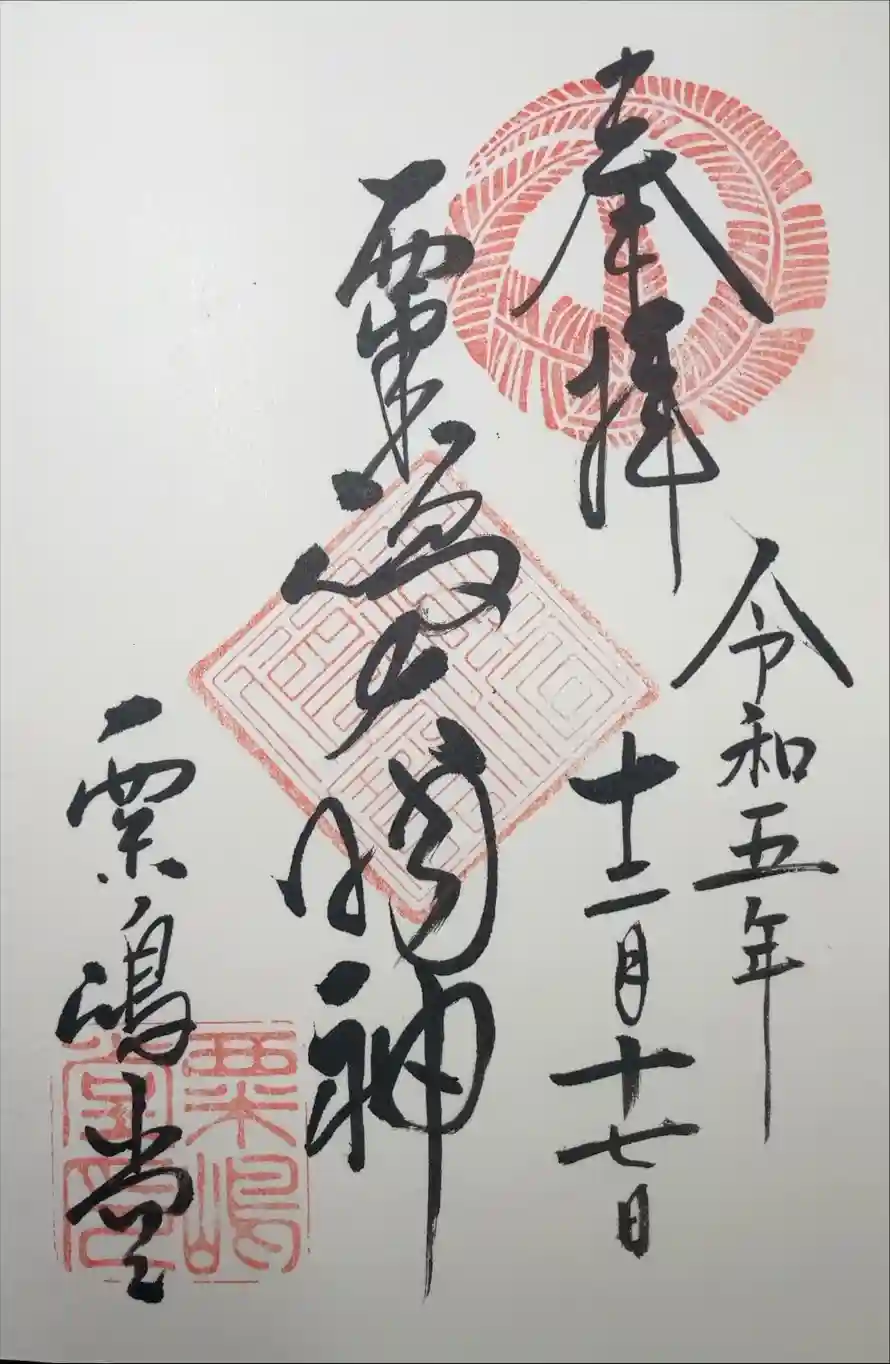 奉拝
令和五年
十二月十七日
粟嶋大明神
粟嶋堂
粟嶋堂印